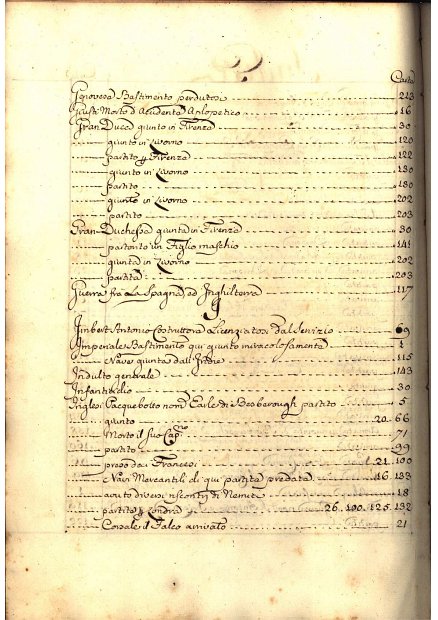 Carte
Genovese Bastimento perdutosi 223
Giusti Morto d'Accidente Aplopetico 16
Gran Duca giunto in Firenze 30
giunto in Livorno 120
partito p Firenze 122
giunto in Livorno 130
partito 180
giunto in Livorno 202
partito 203
Gran Duchessa giunta in Firenze 30
partorito un Figlio maschio 141
giunta in Livorno 202
partita 203
Guerra frà La Spagna, ed Inghilterra 117
G
Imbert Antonio Costruttore Licenziatosi dal Servizio 69
Imperiale Bastimento qui giunto miracolosamente 1
Nave giunta dall'Indie 115
Indulto generale 143
Infanticidio 30
Inglesi Pacquebotto nomo Earle di Besborough partito 5
giunto 20. 66
Morto il suo Capno 71
partito 99
preso dai Francesi 21. 100
Navi Mercantili di qui partite predate 16. 133
avuto diversi riscontri di Nemici 18
partito p Londra 26. 100. 125. 132
Corsale il Falco arrivato 21